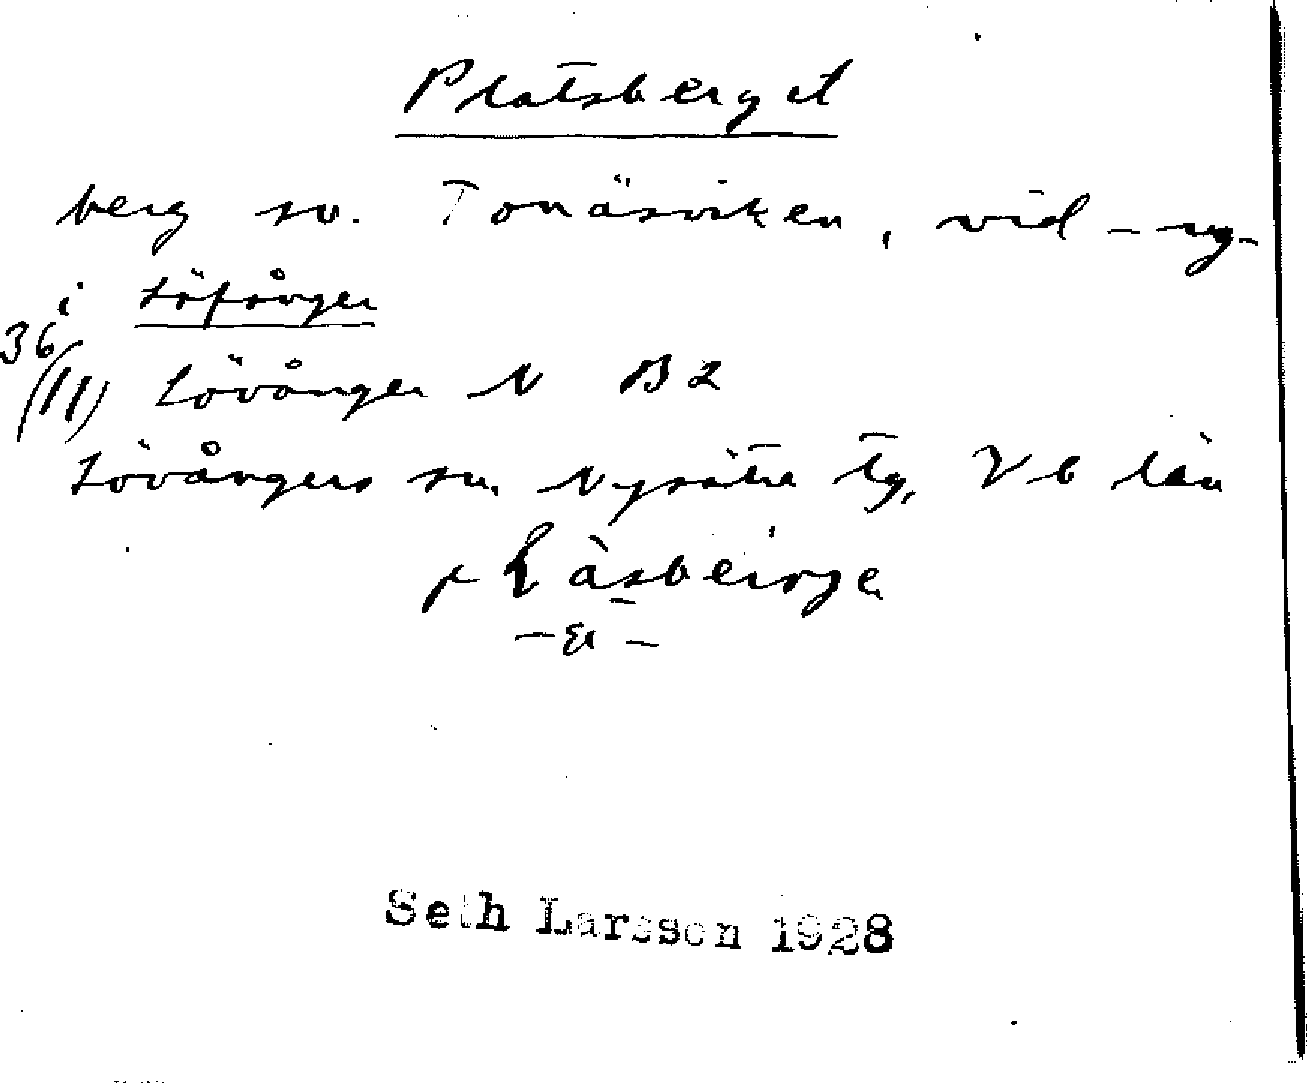 Platsberget
berg sv. Tonäsviken, vid
i Löfånger
36
(11) Lövånger N B2
Lövångers sn, Nysätra tg, Vb län
Seth Larsson 1928